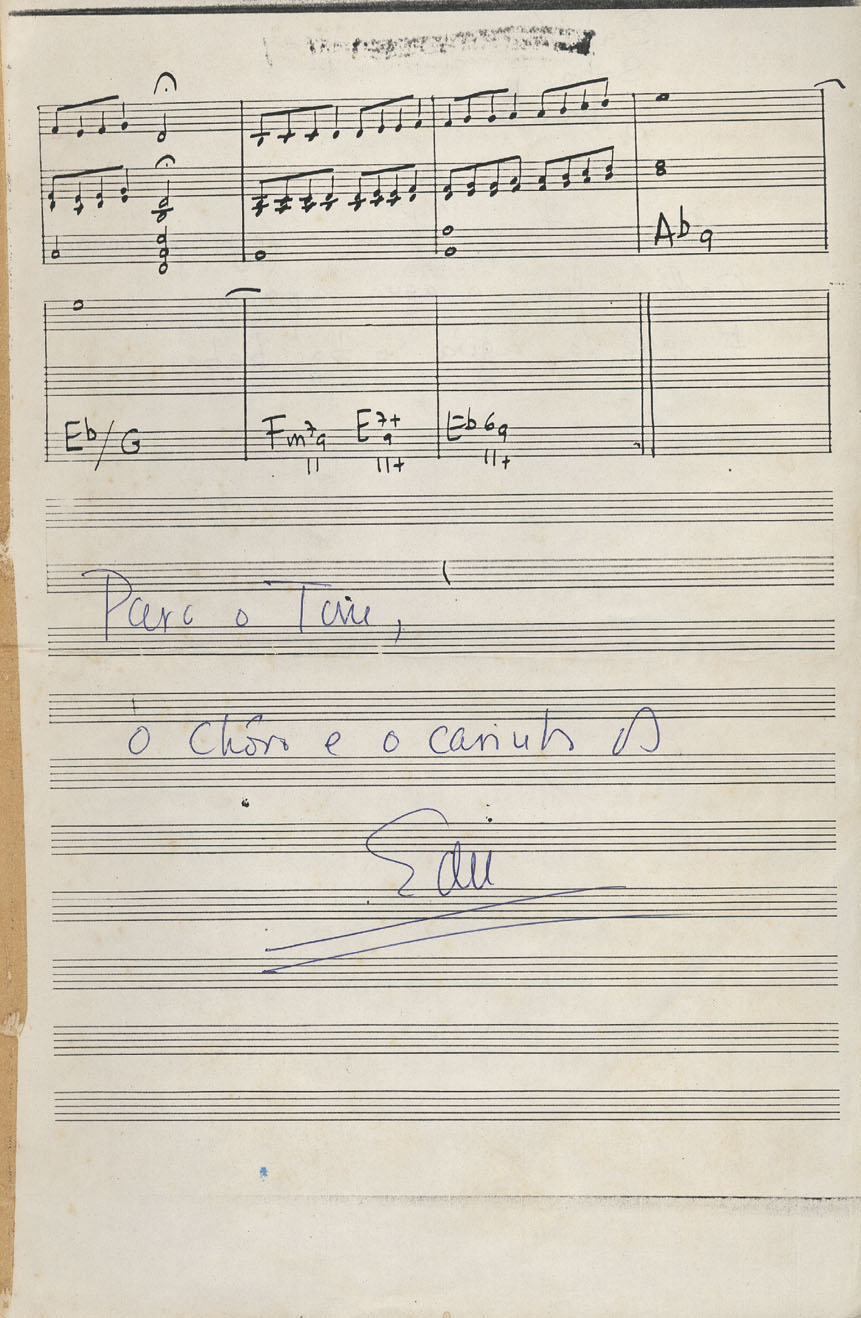 Ab 9
Eb/G Fm7 9 11 E7+ 9 11+ Eb 6 9 11+
Para o Tom,
o chôro e o carinho
Edu